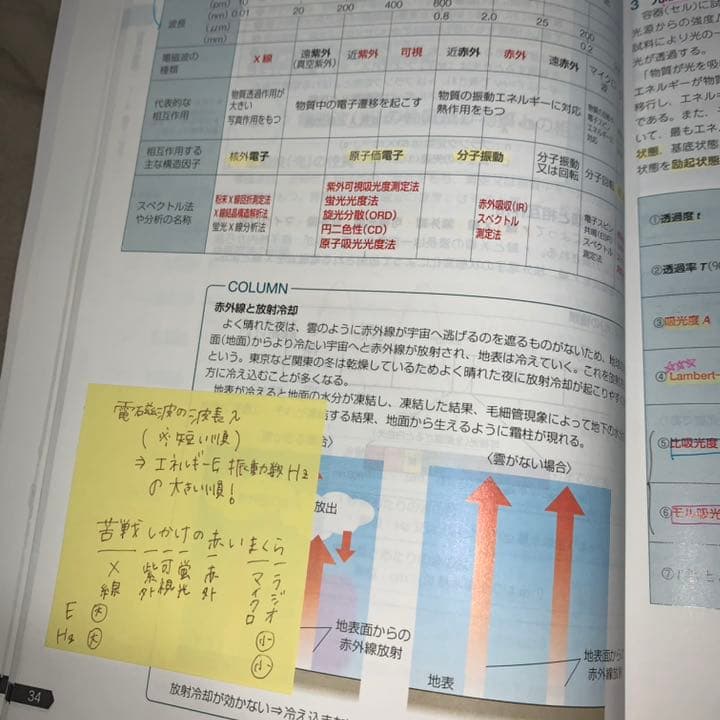 (pm) 10
(nm) 0.01 20 200 400 800
波長
(μm) 0.8 2.0 25 200
(mm) 0.2
電磁波の種類 X線 遠紫外(真空紫外) 近紫外 可視 近赤外 赤外 遠赤外 マイクロ
代表的な相互作用 物質透過作用が大きい 写真作用をもつ 物質中の電子遷移を起こす 物質の振動エネルギーに対応 熱作用をもつ
相互作用する主な構造因子 核外電子 原子価電子 分子振動 分子振動又は回転 分子回転
スペクトル法や分析の名称
粉末X線回折測定法
X線結晶構造解析法
蛍光X線分析法
紫外可視吸光度測定法
蛍光光度法
旋光分散(ORD)
円二色性(CD)
原子吸光光度法
赤外吸収(IR)
スペクトル
測定法
電子スピン
共鳴(ESR)
スペクトル
測定法
COLUMN
赤外線と放射冷却
よく晴れた夜は、雲のように赤外線が宇宙へ逃げるのを遮るものがないため、
面(地面)からより冷たい宇宙へと赤外線が放射され、地表は冷えていく。これを
という。東京など関東の冬は乾燥しているためよく晴れた夜に放射冷却が起こりやす
方に冷え込むことが多くなる。
地表が冷えると地面の水分が凍結し、凍結した結果、毛細管現象によって地下の
する結果、地面から生えるように霜柱が現れる。
〈雲がない場合〉
放出
地表面からの
赤外線放射
地表
地表面からの
赤外線放
放射冷却が効かない⇒冷え込ま
34
電磁波の波長λ
(※短い順)
⇒エネルギーE 振動数Hz
の大きい順!
苦戦しかけの赤いまくら
X線 紫外 可視 蛍光 赤外 マイクロ ラジオ
E 大 小
Hz 大 小
3
容器(セル)に
光源からの強度
試料により光の一
光が透過する。
「物質が光を吸
エネルギーが物質
移行し、エネル
である。また、
いて、最もエネ
状態、基底状態
状態を励起状態
①透過度 t
②透過率 T(%
③吸光度 A
④Lambert-
⑤比吸光度
⑥モル吸光
⑦